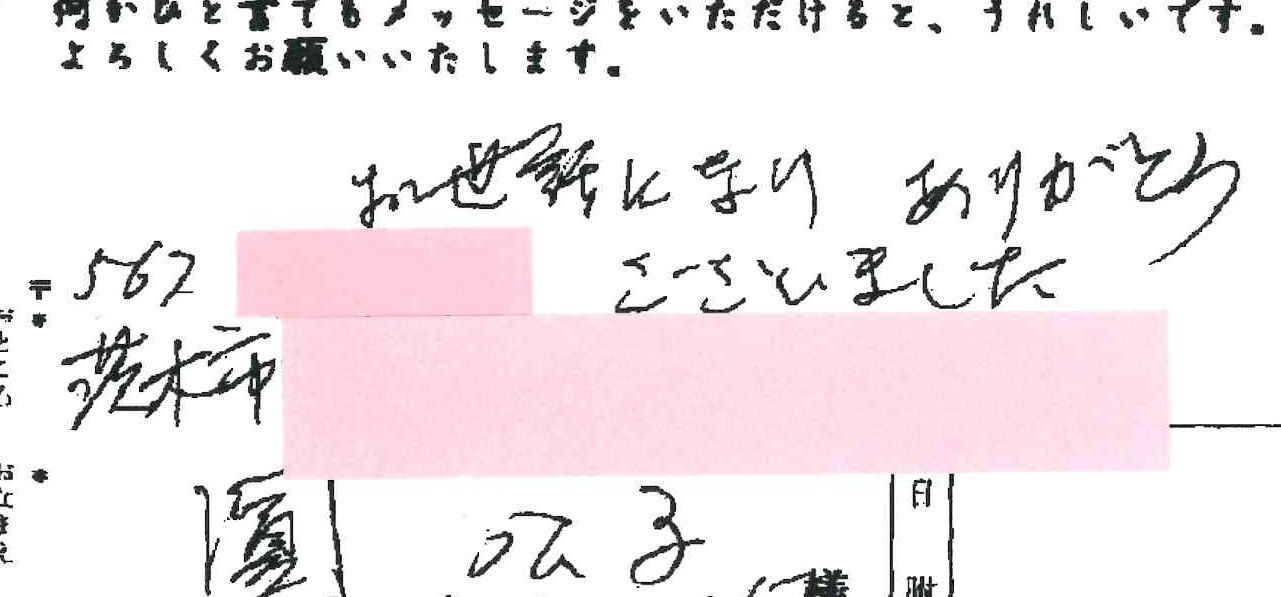 何かひと言でもメッセージをいただけると、うれしいです。
よろしくお願いいたします。
お世話になり ありがとう
ございました
〒 567
茨木市
濱 子
様
日
附